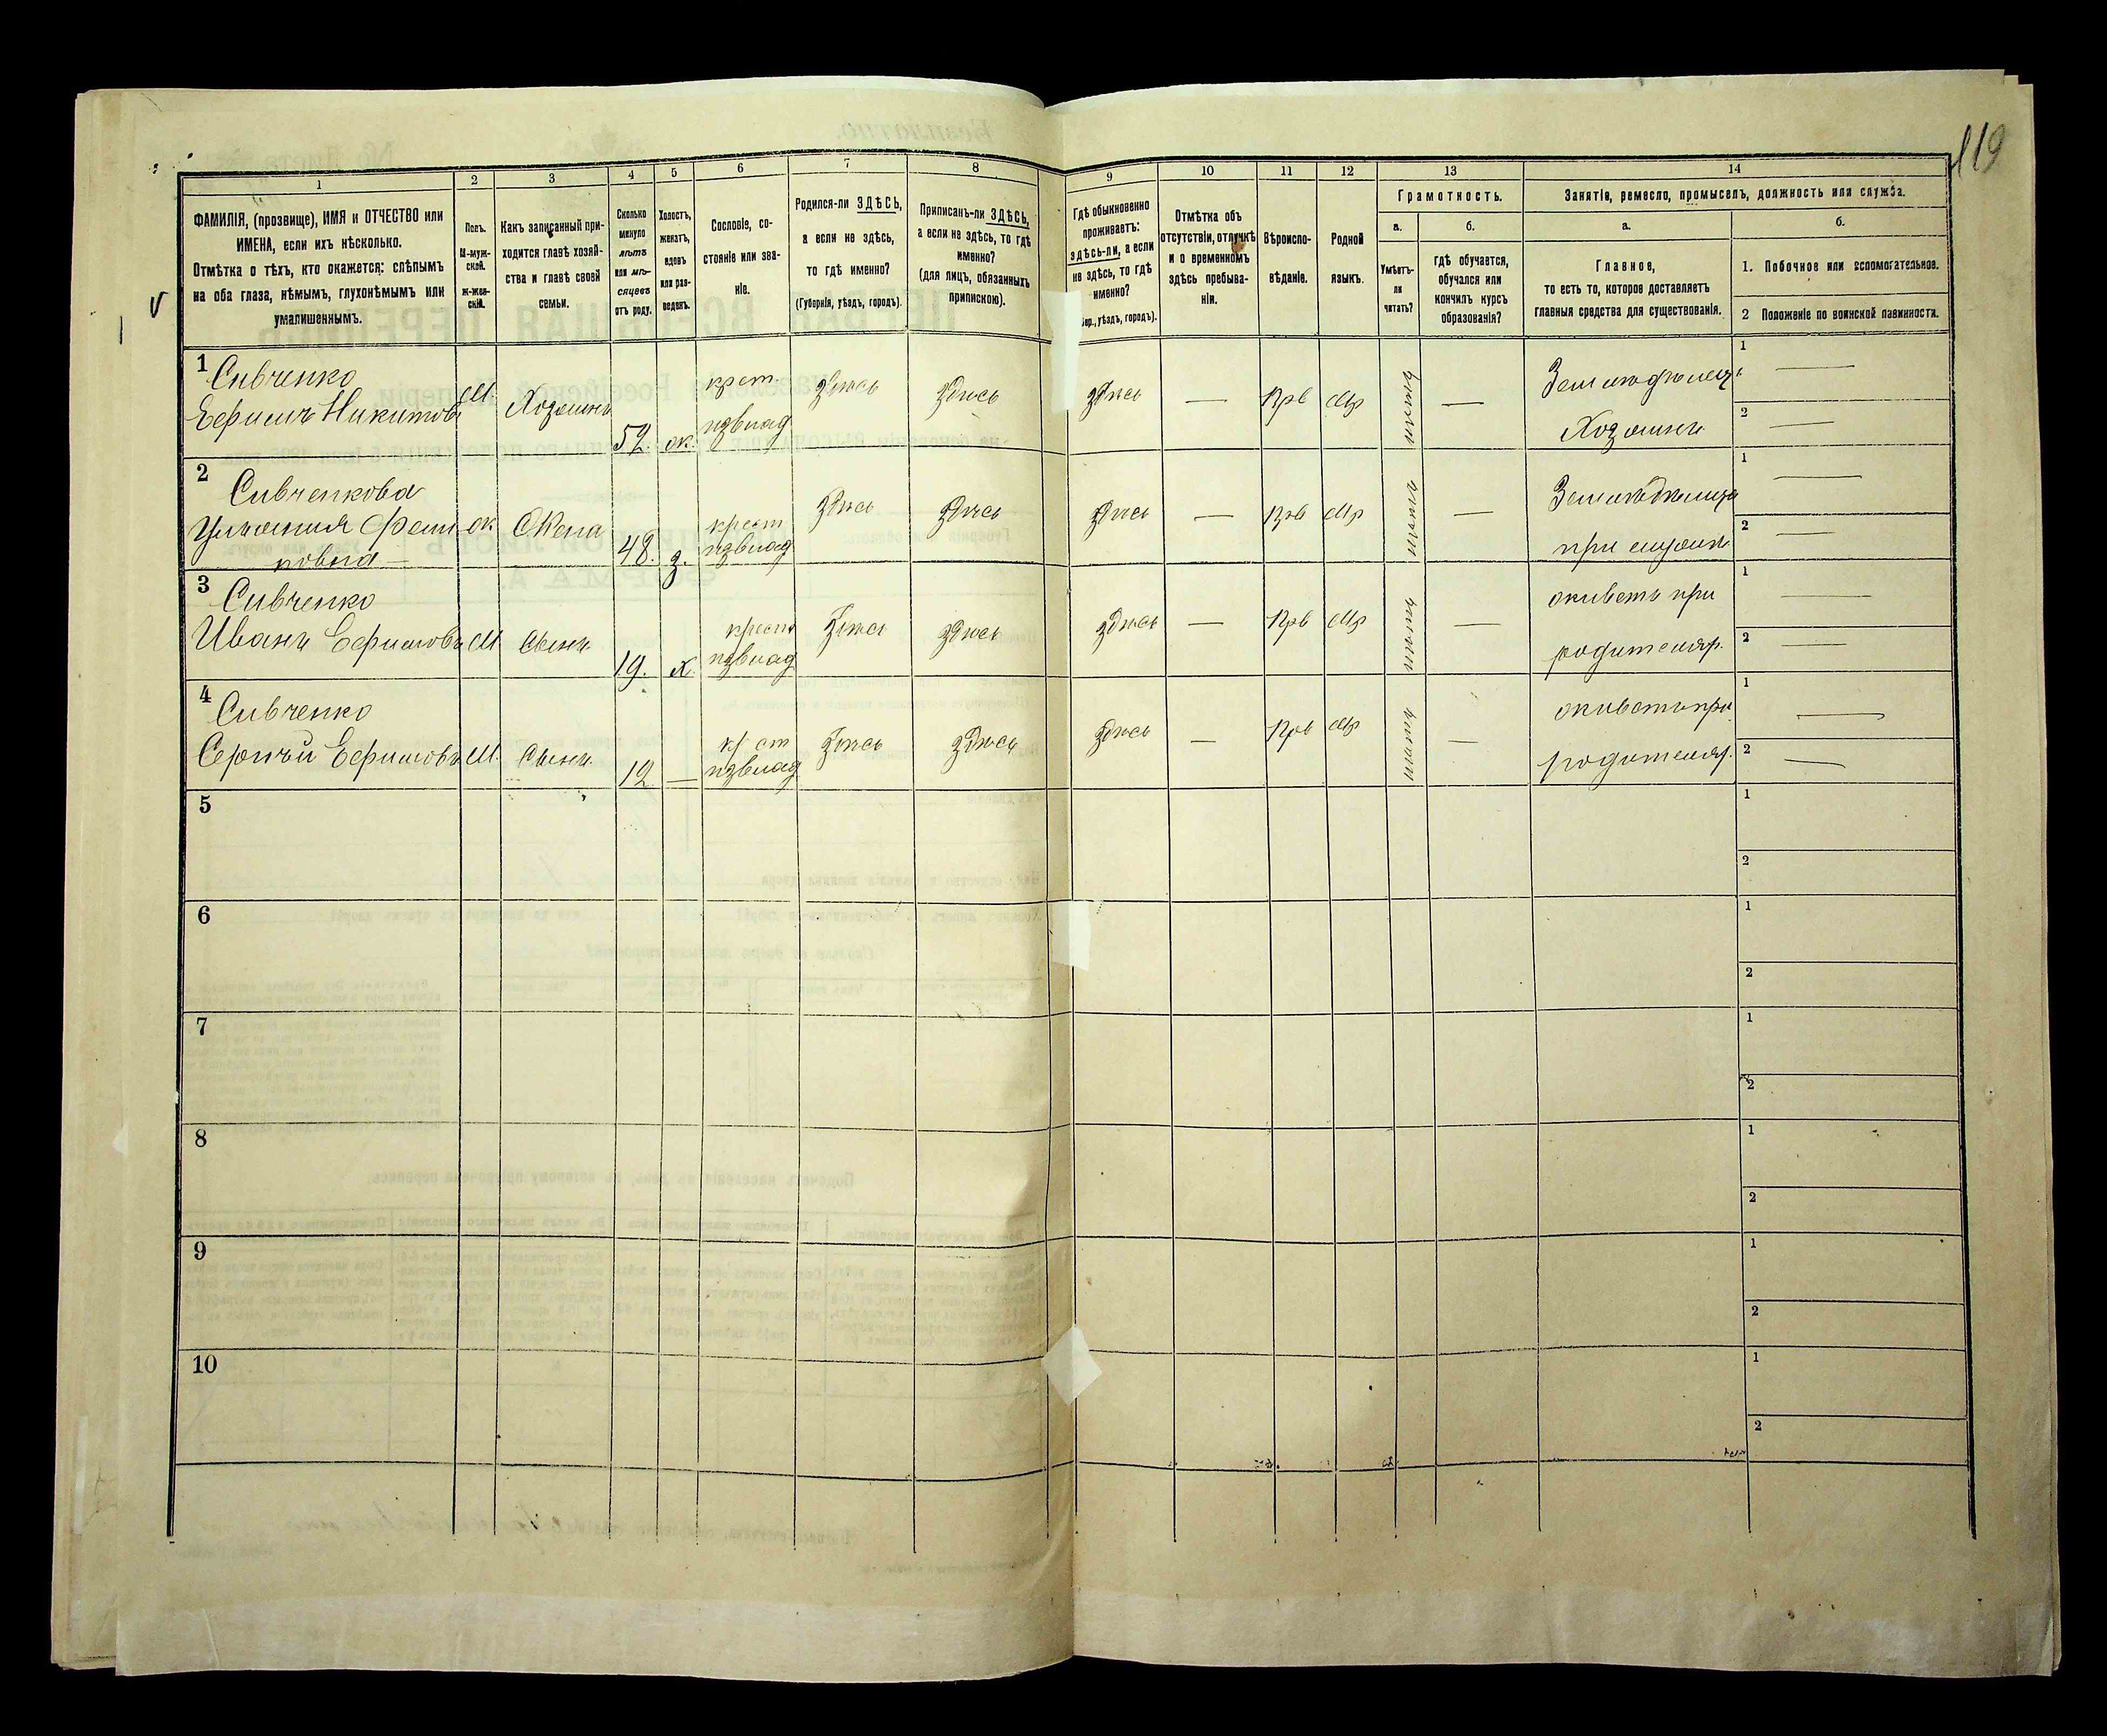 119
1
2
3
4
5
6
7
8
9
10
11
12
13
14
ФАМИЛІЯ, (прозвище), ИМЯ и ОТЧЕСТВО или
ИМЕНА, если ихъ нѣсколько.
Отмѣтка о тѣхъ, кто окажется: слѣпымъ
на оба глаза, нѣмымъ, глухонѣмымъ или
умалишеннымъ.
Полъ.
М-муж-
ской.
Ж-жен-
скій.
Какъ записанный при-
ходится главѣ хозяй-
ства и главѣ своей
семьи.
Сколько
минуло
лѣтъ
или мѣ-
сяцевъ
отъ роду.
Холостъ,
женатъ,
вдовъ
или раз-
веденъ.
Сословіе, со-
стояніе или зва-
ніе.
Родился-ли ЗДѢСЬ,
а если не здѣсь,
то гдѣ именно?
(Губернія, уѣздъ, городъ).
Приписанъ-ли ЗДѢСЬ,
а если не здѣсь, то гдѣ
именно?
(для лицъ, обязанныхъ
припискою).
Гдѣ обыкновенно
проживаетъ:
здѣсь-ли, а если
не здѣсь, то гдѣ
именно?
уѣздъ, городъ).
Отмѣтка объ
отсутствіи, отлучкѣ
и о временномъ
здѣсь пребыва-
ніи.
Вѣроиспо-
вѣданіе.
Родной
языкъ.
Грамотность.
а.
б.
Умѣетъ-
ли
читать?
гдѣ обучается,
обучался или
кончилъ курсъ
образованія?
Занятіе, ремесло, промыселъ, должность или служба.
а.
б.
Главное,
то есть то, которое доставляетъ
главныя средства для существованія.
1. Побочное или вспомогательное.
2 Положеніе по воинской повинности.
1 Сивченко
Ефимъ Никитовъ М. Хозяинъ 52. ж. крест. здѣсь здѣсь здѣсь — Прв Мр — Земледѣлецъ
Хозяинъ
1 —
2 —
2 Сивченкова
ж Жена 48. з. крест здѣсь здѣсь здѣсь — Прв Мр — при
1 —
2 —
3 Сивченко
Иванъ Ефимовъ М Сынъ 19. х. крест здѣсь здѣсь здѣсь — Прв Мр — живетъ при
родителях.
1 —
2 —
4 Сивченко
Сергѣй Ефимовъ М. Сынъ. 12 — крест здѣсь здѣсь здѣсь — Прв Мр — живетъ при
родителях.
1 —
2 —
5
1
2
6
1
2
7
1
2
8
1
2
9
1
2
10
1
2